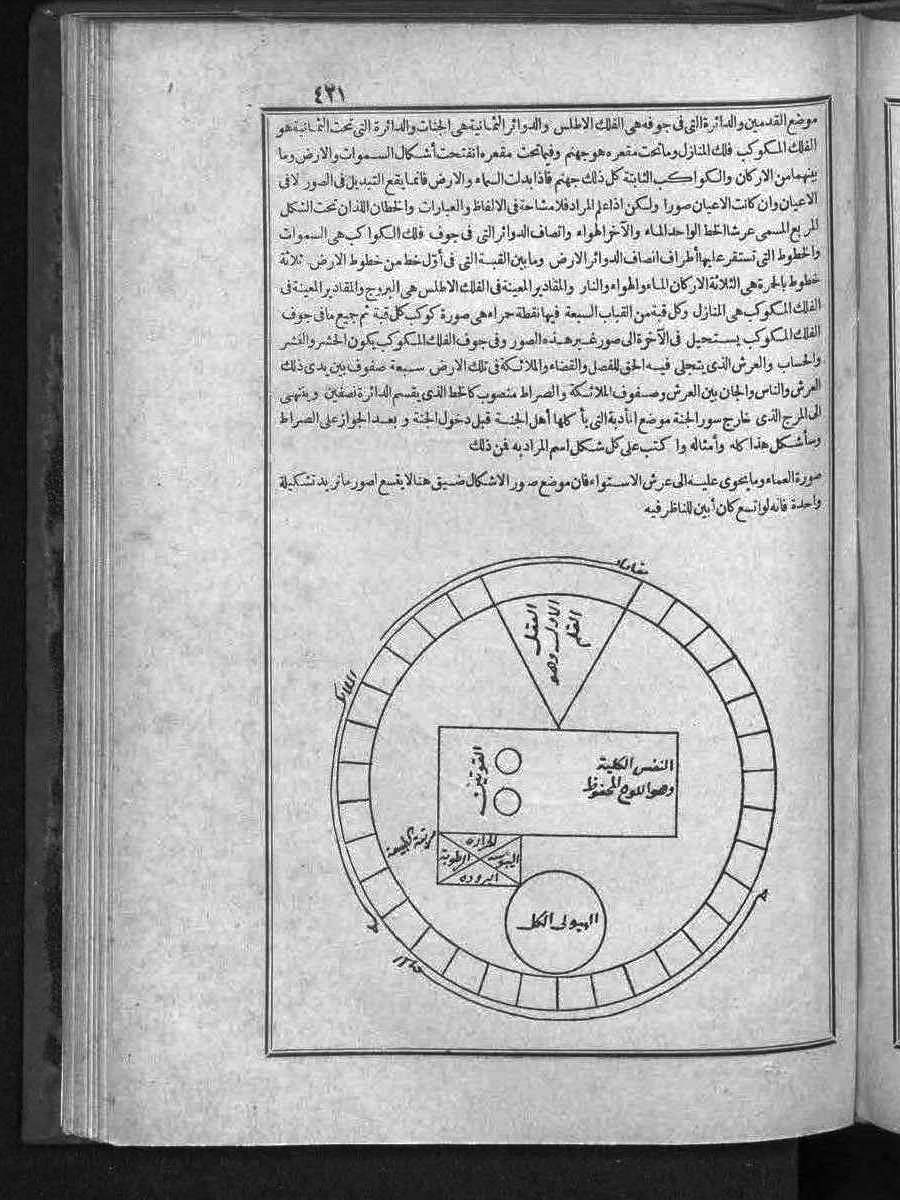 ٤٣١
موضع القدمين والدائرة التى فى جوفه هى الفلك الاطلس والدوائر الثمانية هى الجنات والدائرة التى تحت الثمانية هو
الفلك المكوكب فلك المنازل وما تحت مقعره هو جهنم وفيما تحت مقعره انفتحت أشكال السموات والارض وما
بينهما من الاركان والكواكب الثابتة كل ذلك جهنم فاذا بدلت السماء والارض فانما يقع التبديل فى الصور لا فى
الاعيان وان كانت الاعيان صورا ولكن اذا علم المراد فلا مشاحة فى الالفاظ والعبارات والخطان اللذان تحت الشكل
المربع المسمى عرشا الخط الواحد الماء والآخر الهواء وانصاف الدوائر التى فى جوف فلك الكواكب هى السموات
والخطوط التى تستقر عليها أطراف انصاف الدوائر الارض وما بين القبة التى فى أوّل خط من خطوط الارض ثلاثة
خطوط بالحمرة هى الثلاثة الاركان الماء والهواء والنار والمقادير المعينة فى الفلك الاطلس هى البروج والمقادير المعينة فى
الفلك المكوكب هى المنازل وكل قبة من القباب السبعة فيها نقطة حمراء هى صورة كوكب كل قبة ثم جميع ما فى جوف
الفلك المكوكب يستحيل فى الآخرة الى صور غير هذه الصور وفى جوف الفلك المكوكب يكون الحشر والنشر
والحساب والعرش الذى يتجلى فيه الحق للفصل والقضاء والملائكة فى تلك الارض سبعة صفوف بين يدى ذلك
العرش والناس والجان بين العرش وصفوف الملائكة والصراط منصوب كالخط الذى يقسم الدائرة نصفين وينتهى
الى المرج الذى خارج سور الجنة موضع المأدبة التى يأكلها أهل الجنة قبل دخول الجنة وبعد الجواز على الصراط
وسأشكل هذا كله وأمثاله واكتب على كل شكل اسم المراد به فمن ذلك
صورة العماء وما يحوى عليه الى عرش الاستواء فان موضع صور الاشكال ضيق هنا لا يتسع لصور ما نريد تشكيله
واحدة فانه لو اتسع كان أبين للناظر فيه
العقل
الاول وهو
القلم
الملائكة
النفس الكلية
وهو اللوح المحفوظ
القوتين
الحرارة
اليبوسة
الرطوبة
البرودة
مرتبة الطبيعة
الهيولى الكل